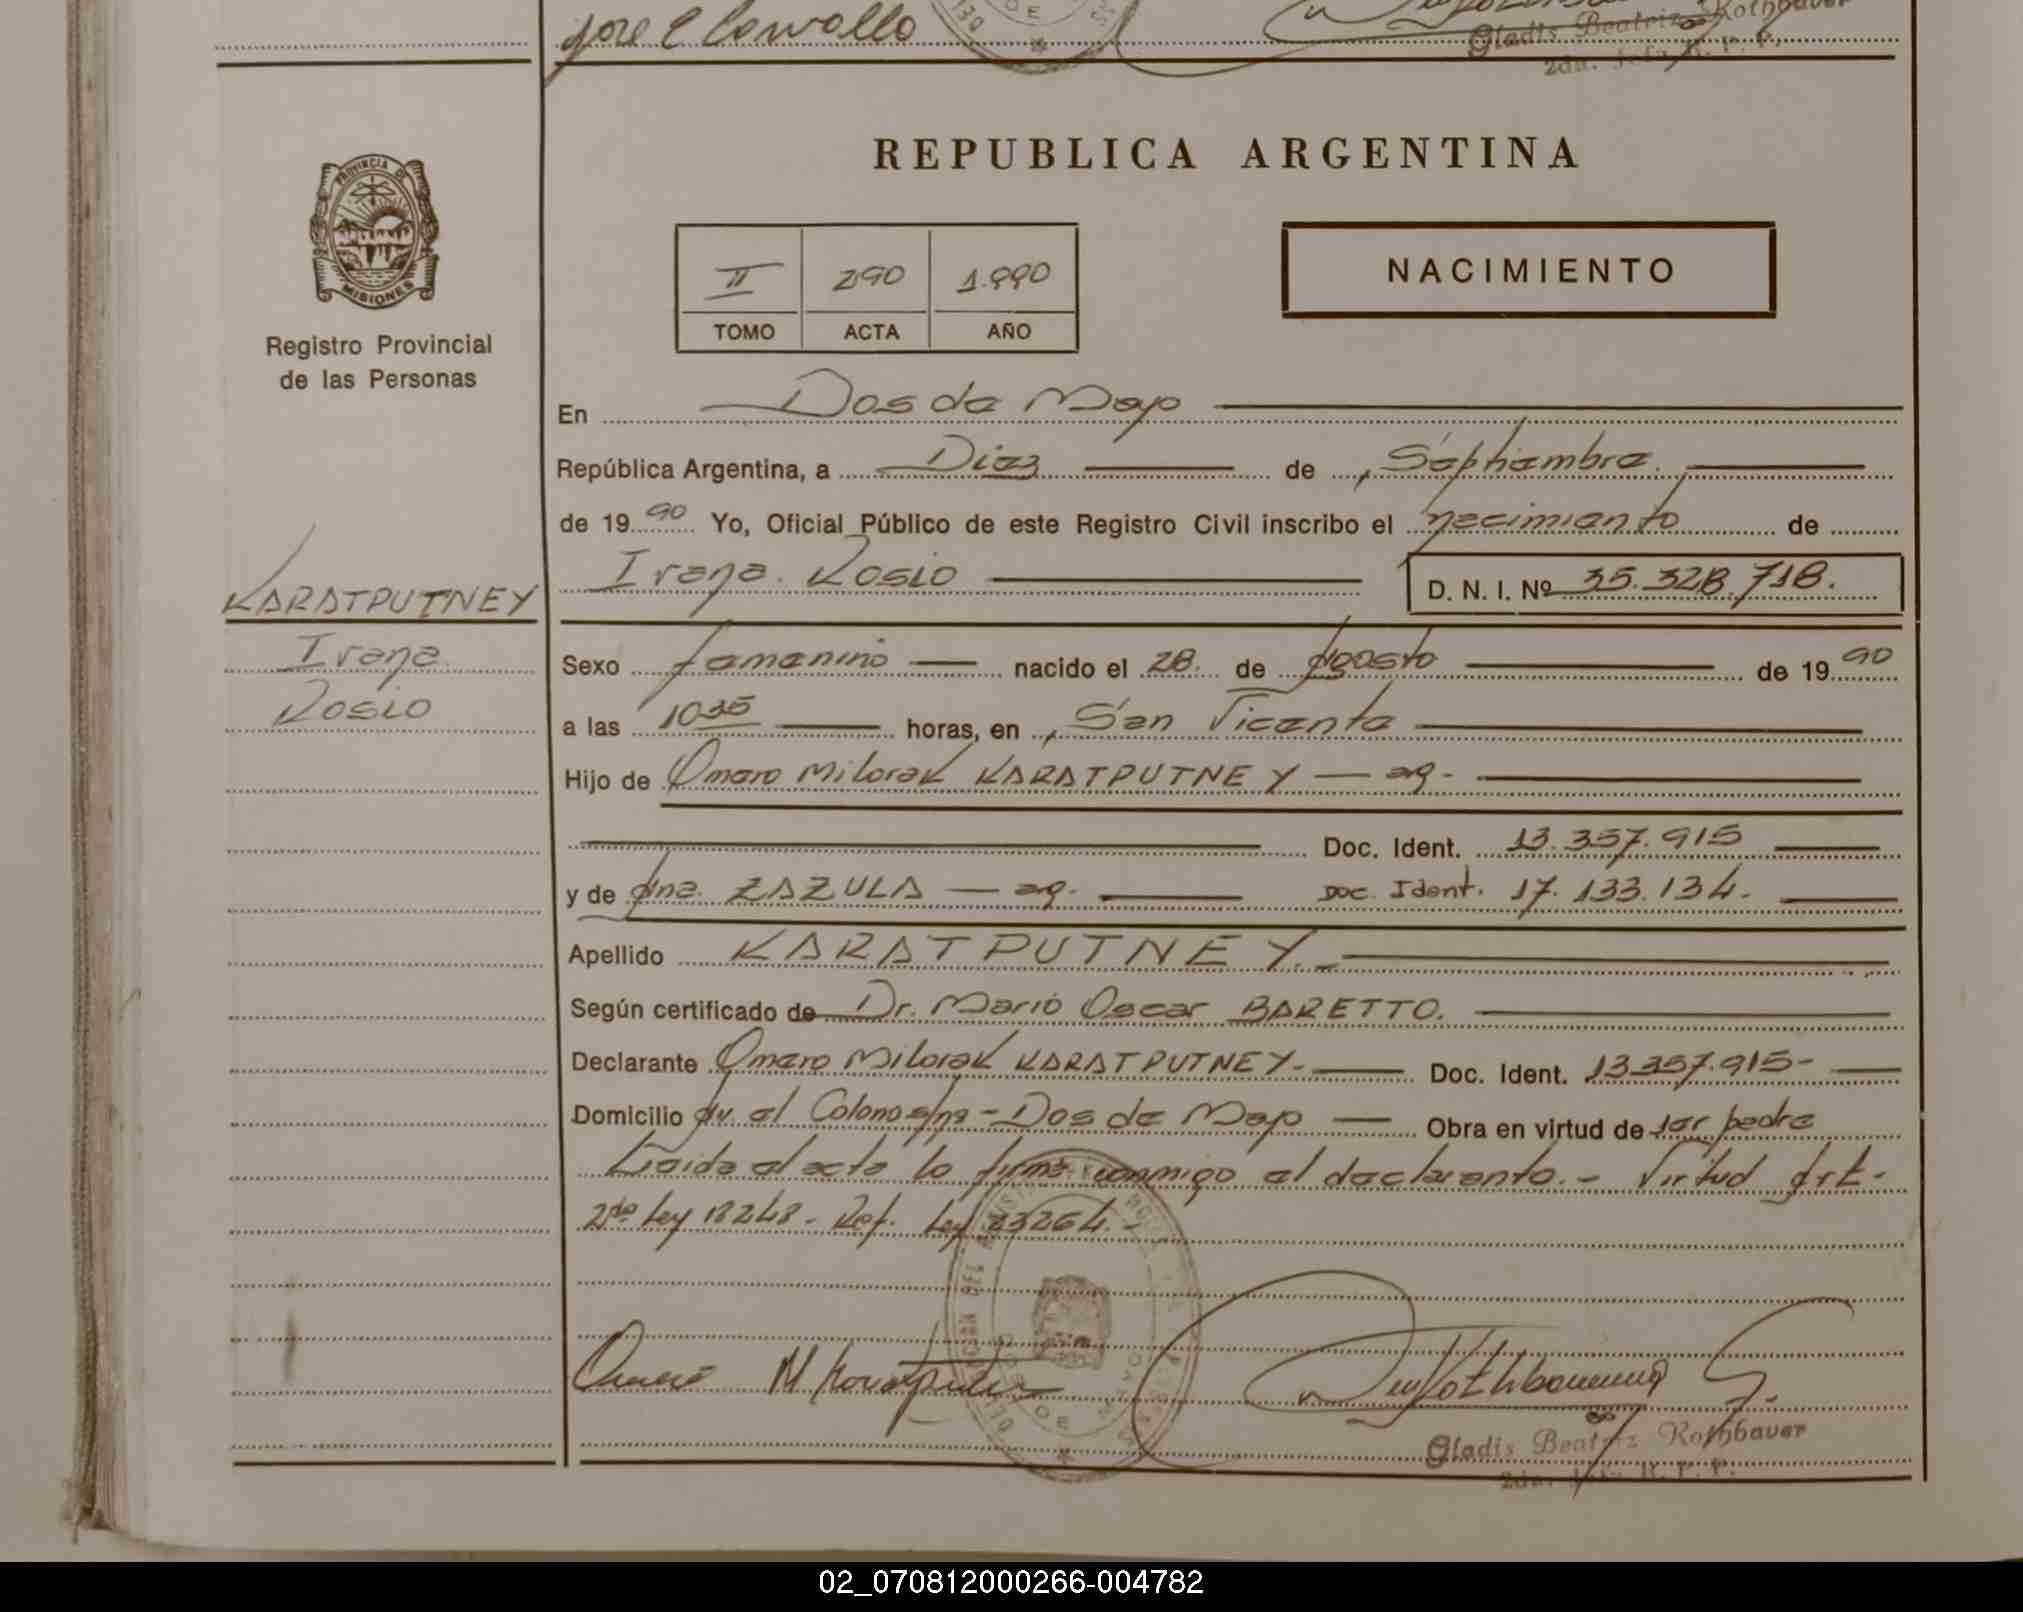 José E Carvallo
Gladis Beatriz Rothbauer
2da. Jefa R. P. P.
REPUBLICA ARGENTINA
PROVINCIA DE
MISIONES
Registro Provincial
de las Personas
II 290 1.990
TOMO ACTA AÑO
NACIMIENTO
En Dos de Mayo
República Argentina, a Diez de Septiembre
de 1990 Yo, Oficial Público de este Registro Civil inscribo el nacimiento de
Ivana Rosio
D. N. I. Nº 35.328.718.
KARATPUTNEY
Ivana
Rosio
Sexo femenino nacido el 28 de Agosto de 1990
a las 1035 horas, en San Vicente
Hijo de Omaro Milorak KARATPUTNEY — ag.
Doc. Ident. 13.357.915
y de Ana ZAZULA — ag. Doc. Ident. 17.133.134.
Apellido KARATPUTNEY.
Según certificado de Dr. Mario Oscar BARETTO.
Declarante Omaro Milorak KARATPUTNEY- Doc. Ident. 13.357.915-
Domicilio Av. el Colono s/nº - Dos de Mayo Obra en virtud de ser padre
Leida el acta la firma conmigo el declarante. - Virtud Art.
2do Ley 18248- Ref. Ley 23264.-
Omaro M Karatputney
Rothbauer G.
Gladis Beatriz Rothbauer
2da. Jefa R. P. P.
02_070812000266-004782